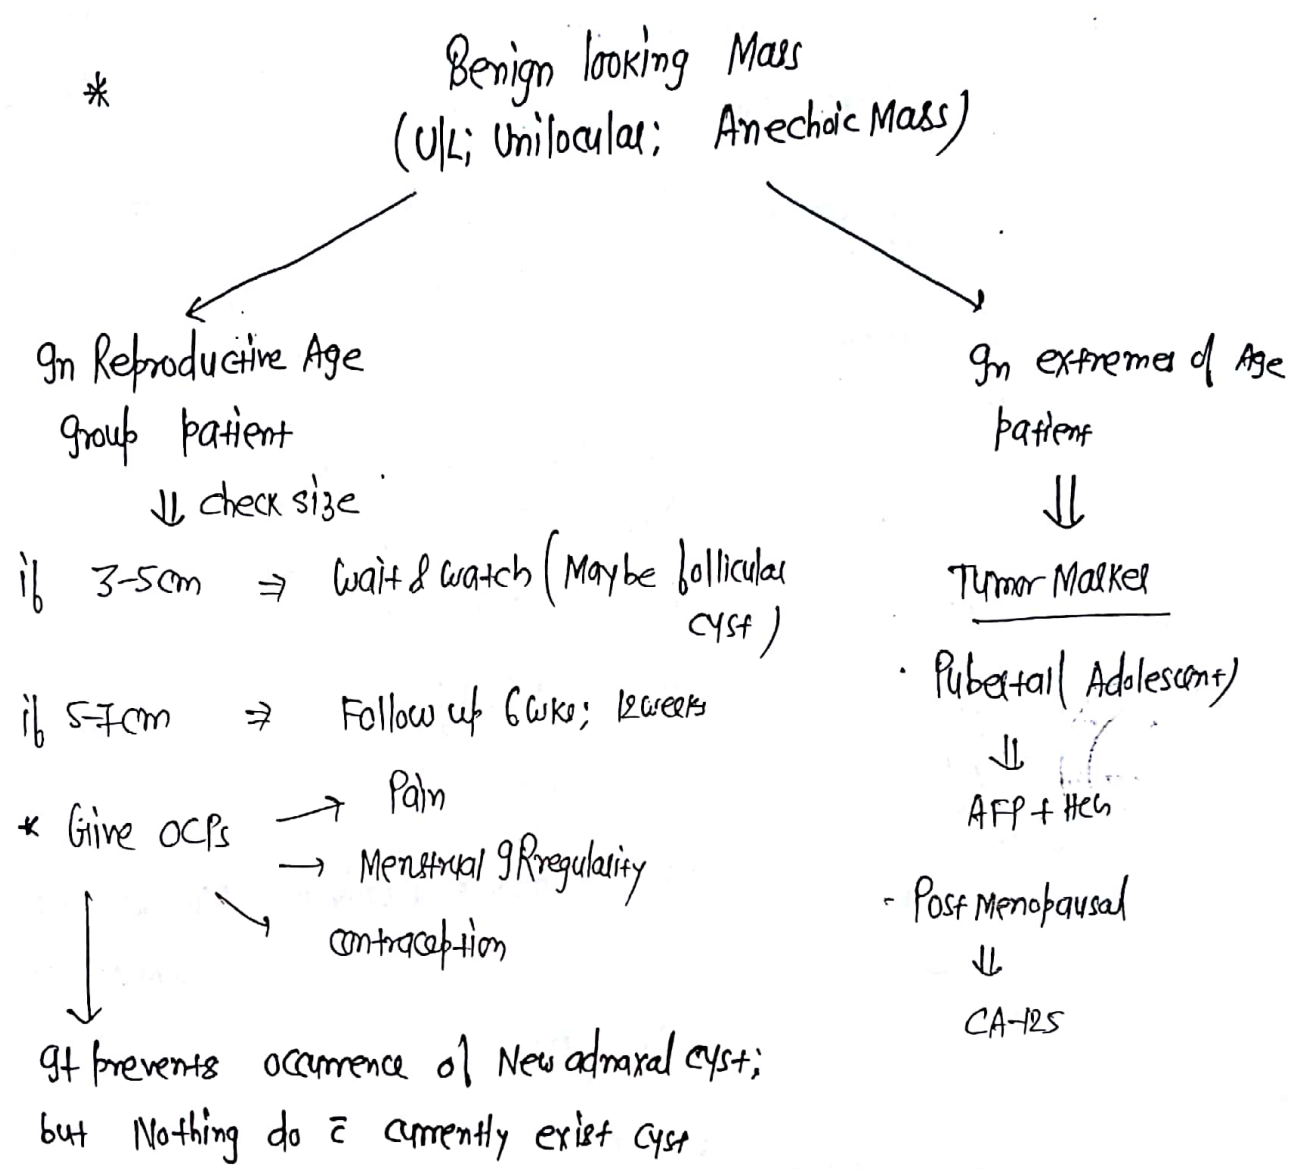 *
Benign looking Mass
(U/L; Unilocular; Anechoic Mass)
In Reproductive Age
group patient
⇓ check size
if 3-5cm ⇒ wait & watch (Maybe follicular
cyst)
if 5-7cm ⇒ Follow up 6 wks; 12 weeks
* Give OCPs → Pain
→ Menstrual IRregularity
contraception
It prevents occurrence of New adnaxal cyst;
but Nothing do c̄ currently exist cyst
In extremes of Age
patient
⇓
Tumor Marker
· Pubertal (Adolescent)
⇓
AFP + HCG
- Post Menopausal
⇓
CA-125